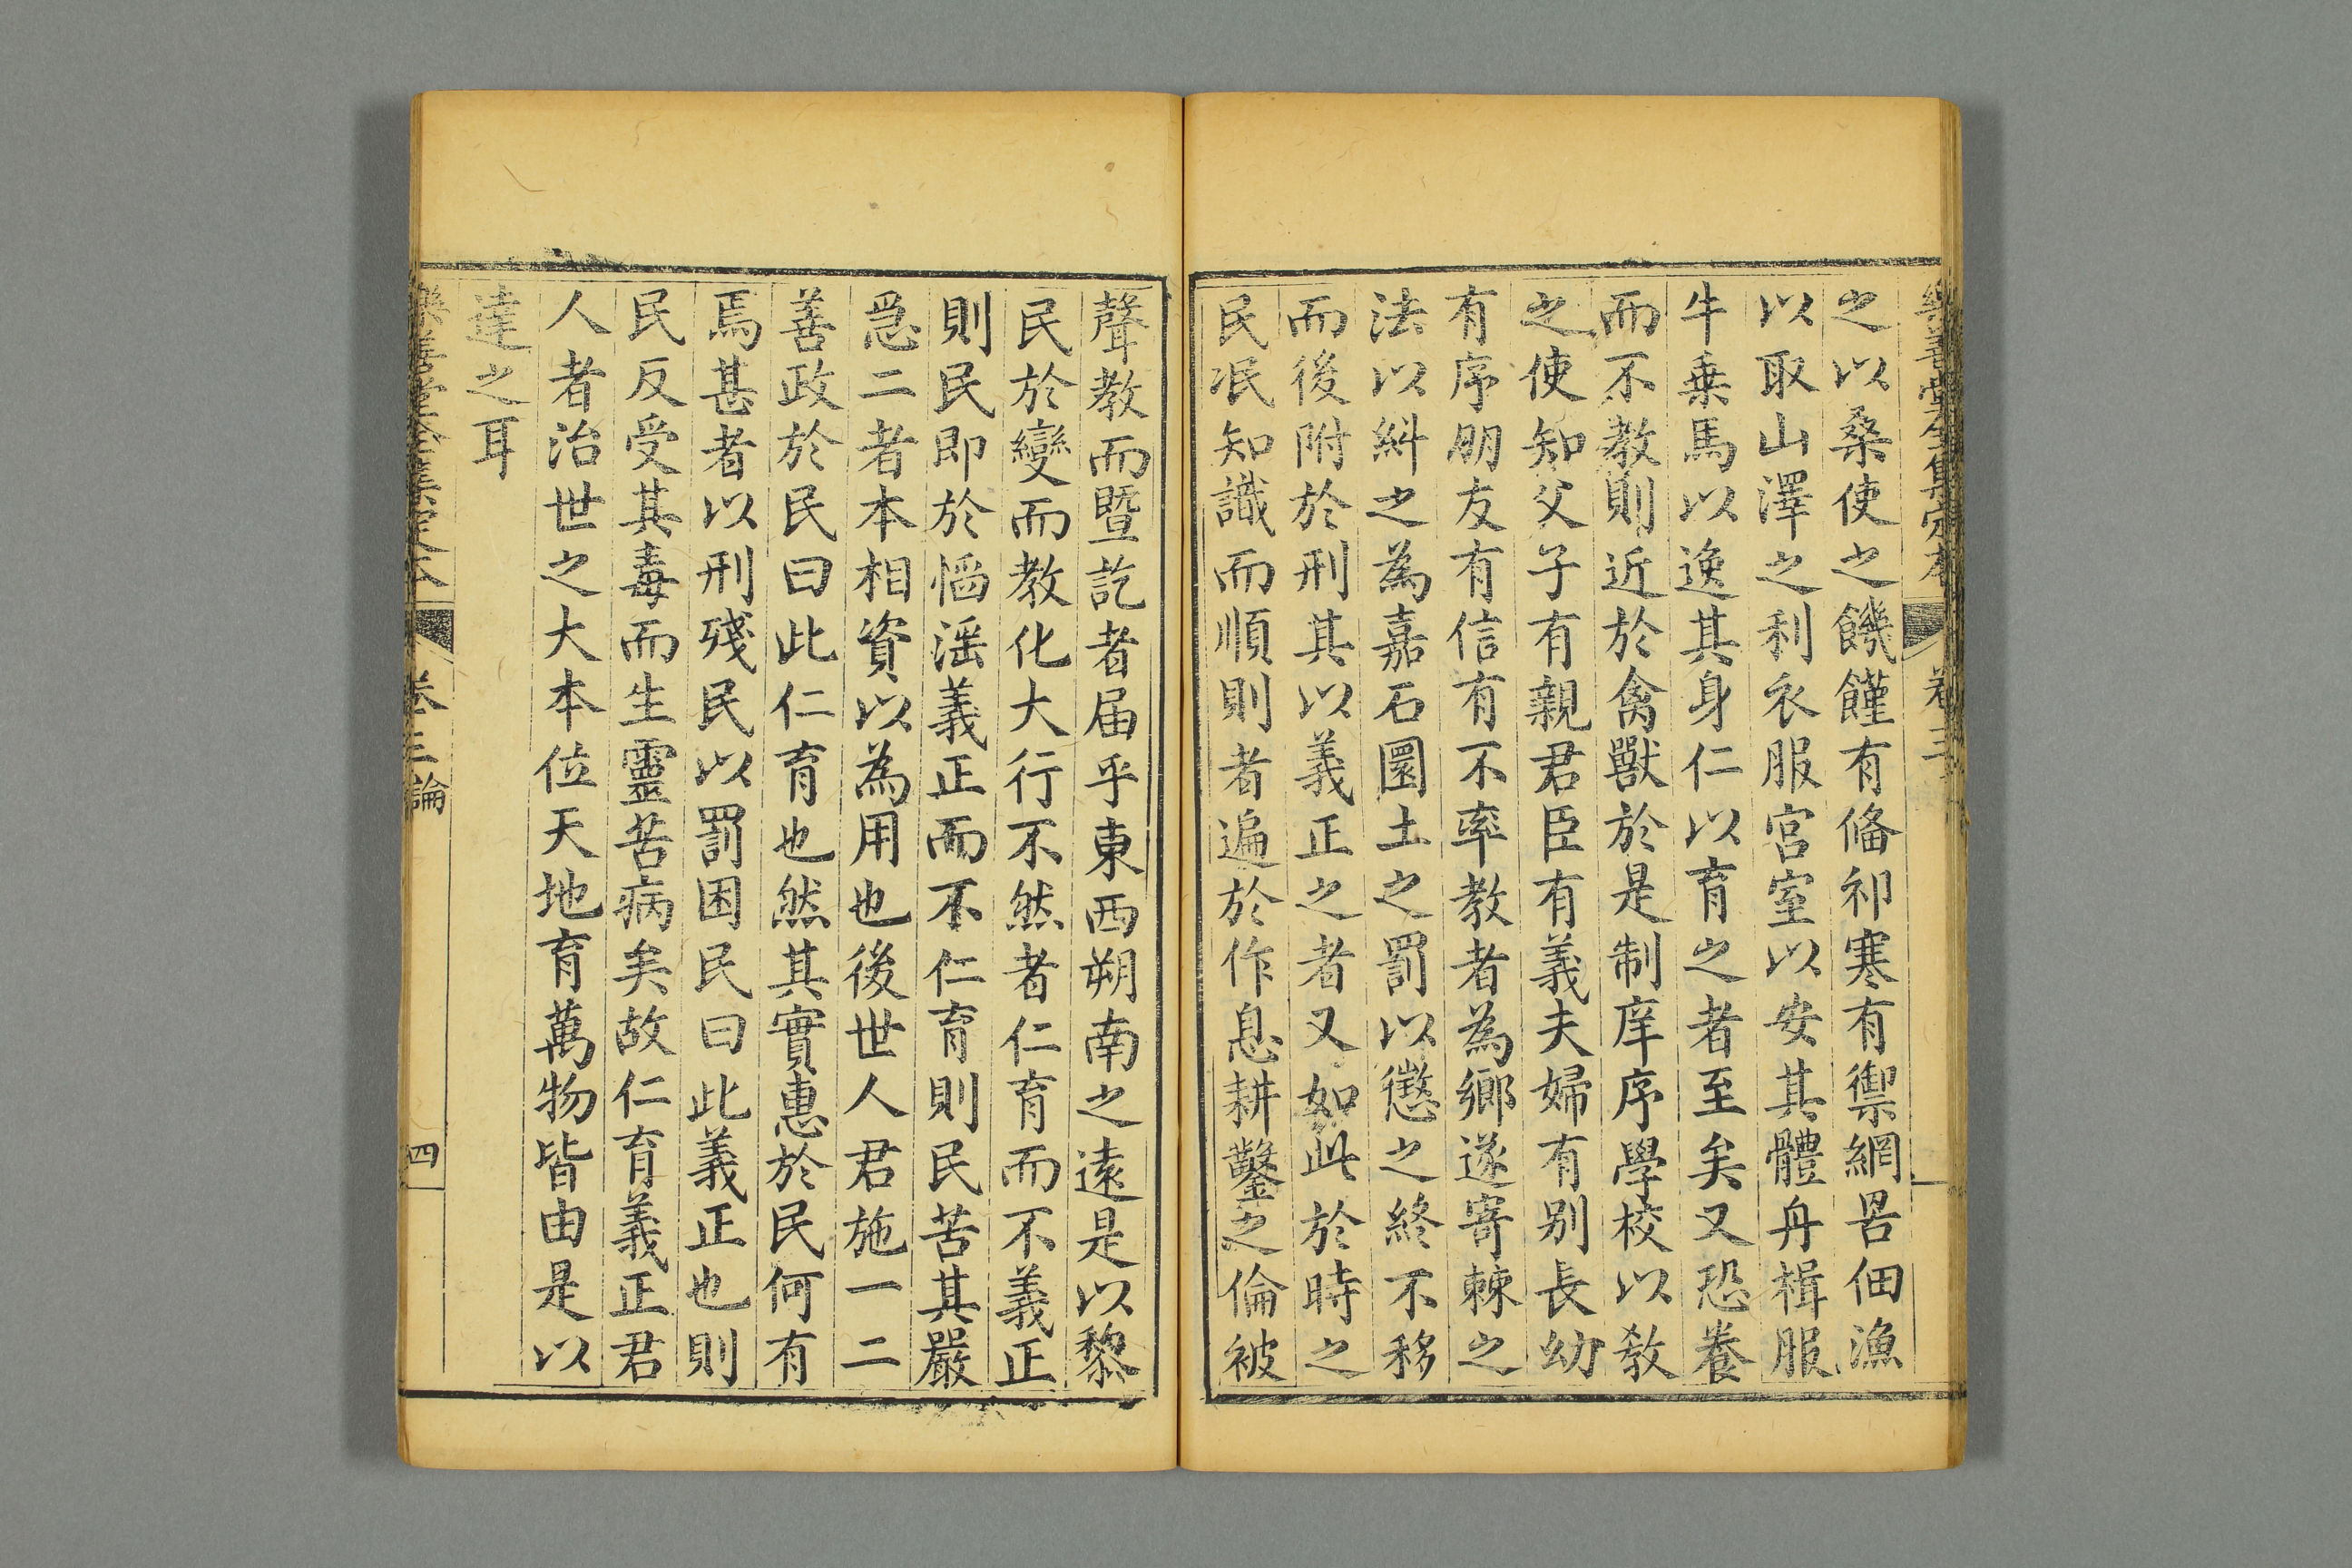 樂善堂全集定本 卷三
之以桑使之饑饉有備祁寒有禦網罟佃漁
以取山澤之利衣服宮室以安其體舟楫服
牛乗馬以逸其身仁以育之者至矣又恐養
而不教則近於禽獸於是制庠序學校以教
之使知父子有親君臣有義夫婦有别長幼
有序朋友有信有不率教者為鄉遂寄棘之
法以糾之為嘉石圜土之罰以懲之終不移
而後附於刑其以義正之者又如此於時之
民冺知識而順則者遍於作息耕鑿之倫被
聲教而暨訖者届乎東西朔南之遠是以黎
民於變而教化大行不然者仁育而不義正
則民即於慆滛義正而不仁育則民苦其嚴
急二者本相資以為用也後世人君施一二
善政於民曰此仁育也然其實惠於民何有
焉甚者以刑殘民以罰困民曰此義正也則
民反受其毒而生靈苦病矣故仁育義正君
人者治世之大本位天地育萬物皆由是以
達之耳
樂善堂全集定本 卷三論 四